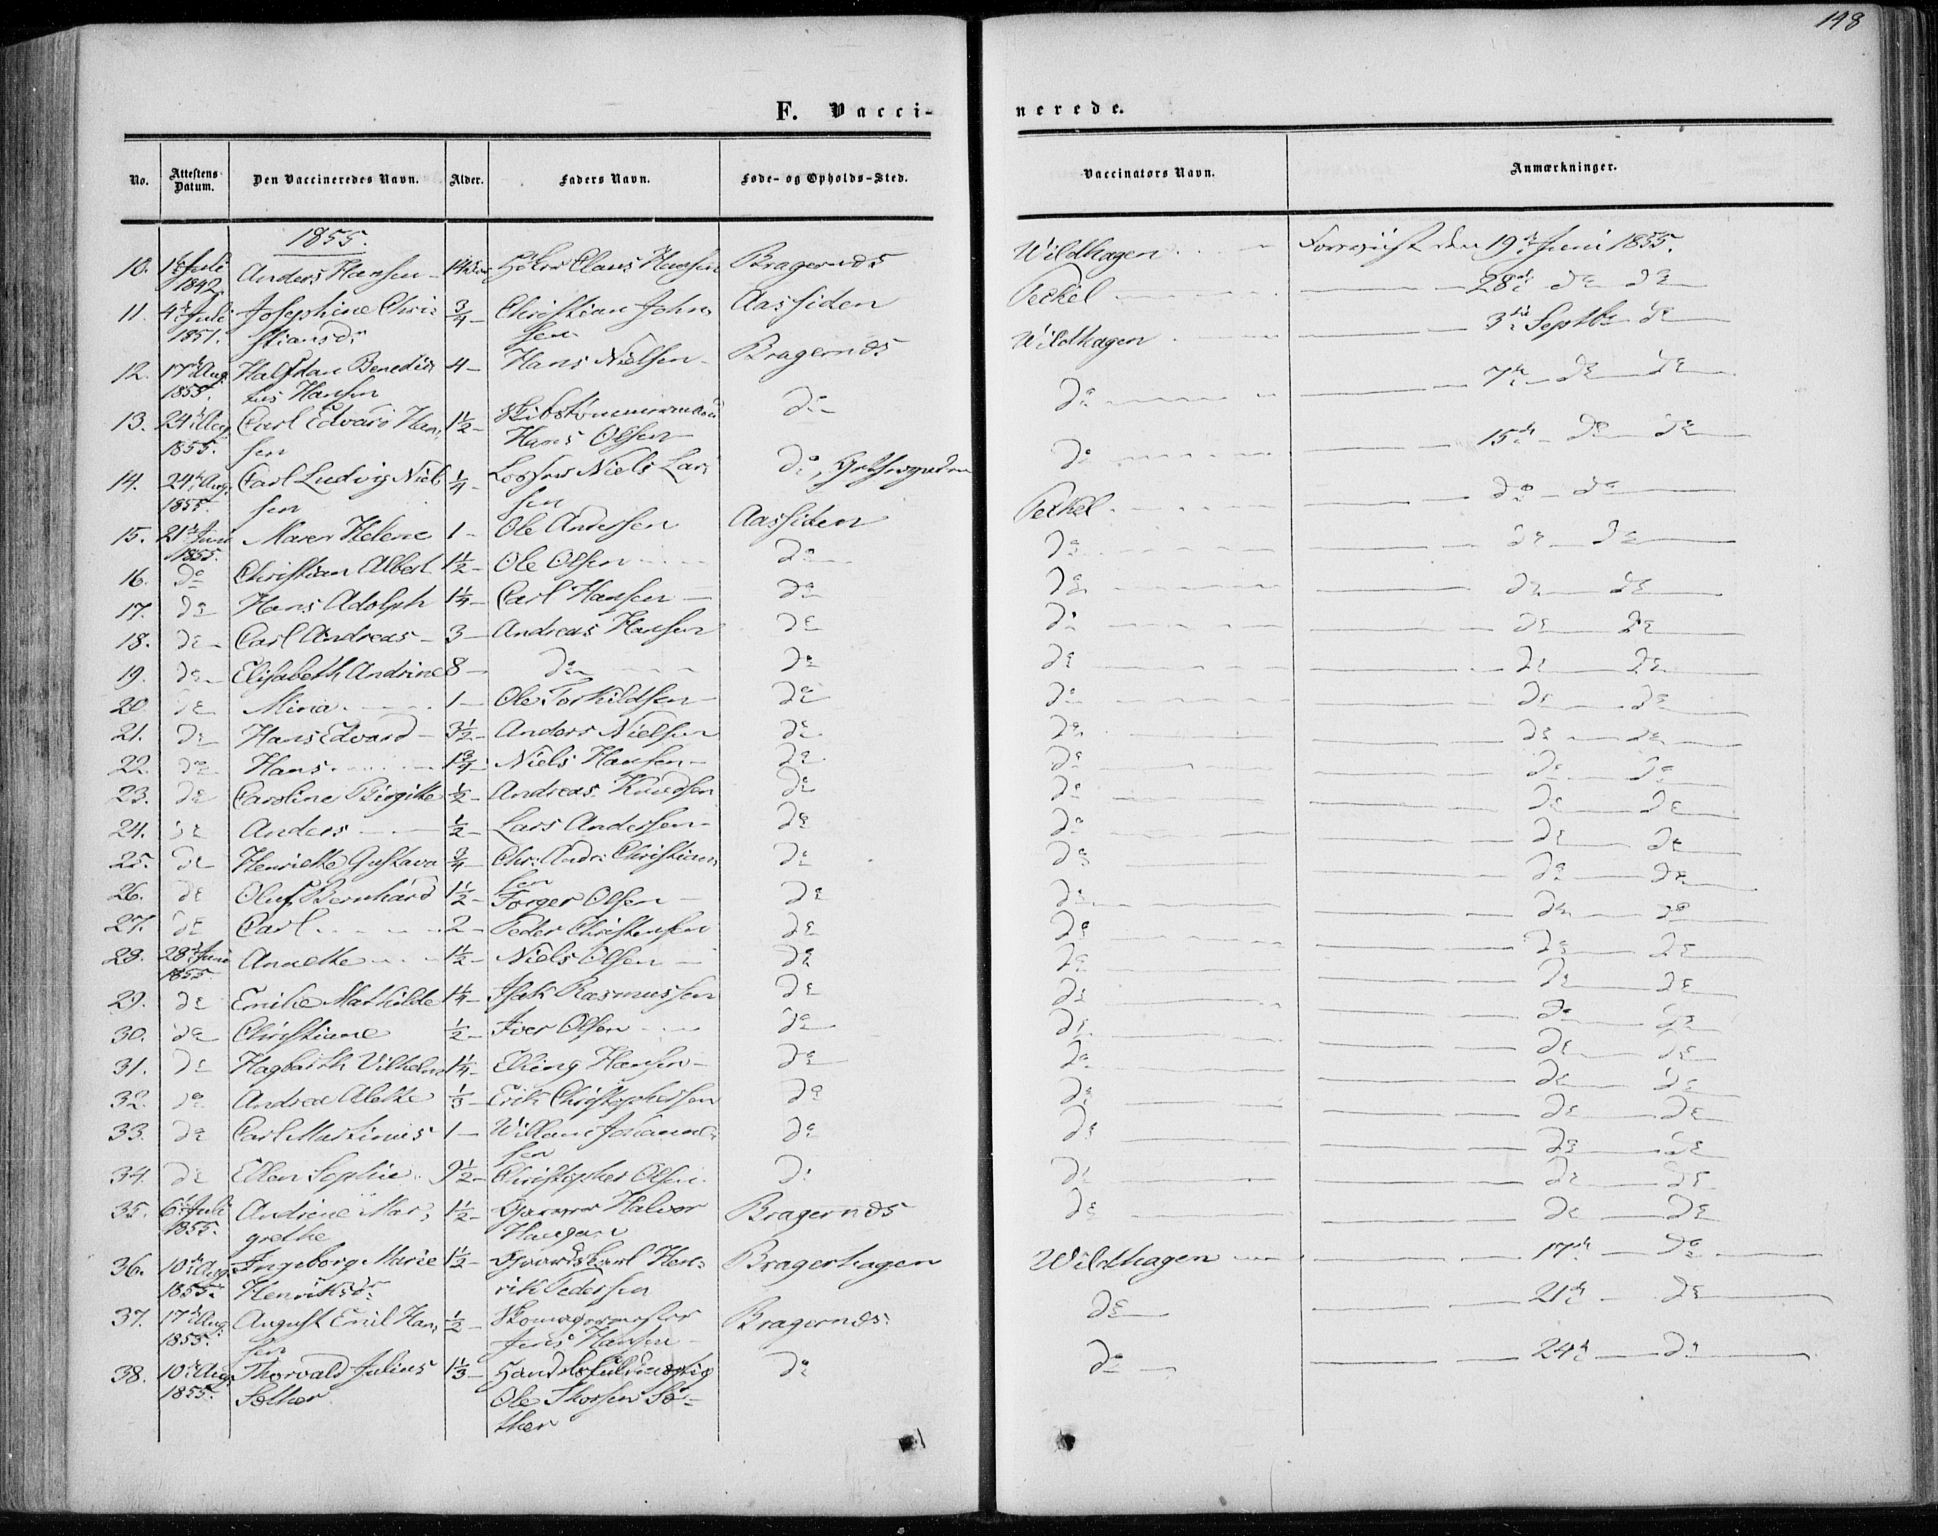 198
F. Vacci-
nerede.
No. Attestens Datum. Den Vaccineredes Navn. Alder. Faders Navn. Føde- og Opholds-Sted. Vaccinators Navn. Anmærkninger.
1855.
10. 1ste Juli Anders Hansen Claus Hansen Bragernæs Wildhagen Forevist den 19de Juni 1855.
1842
11. 4de Juli Josephine Chri- 3/4 Christian John- Aassiden Peckel 28de do do
1851. stiansd: sen
12. 17de Aug. Halfdan Benedic- 4 Hans Nielsen Bragernæs Wildhagen 3die Septbr do
1855. tus Hansen
13. 24de Aug Carl Edvard Han- 1 1/2 Skibstømmermand do do 7de do do
1855. sen Hans Olsen
14. 24de Aug. Carl Ludvig Niel- 1/4 Niels Lar- do, do 15de do do
1855. sen sen
15. 21de Juni Maren Helene 1 Ole Andersen Aassiden Peckel do do
1855.
16. do Christian Albert 1 1/2 Ole Olsen do do do do
17. do Hans Adolph 1 1/4 Carl Hansen do do do do
18. do Carl Andreas 3 Andreas Hansen do do do do
19. do Elisabeth Andrine 8 do do do do do
20 do Mina 1 Ole Torkildsen do do do do
21. do Hans Edvard 3 1/2 Anders Nielsen do do do do
22. do Hans 1 3/4 Niels Hansen do do do do
23. do Caroline Birgitte 1/2 Andreas Knudsen do do do do
24. do Anders 1/2 Lars Andersen do do do do
25. do Henriette Gustava 3/4 Chr. Andr: Christian- do do do do
sen
26. do Oluf Bernhard 1 1/2 Torger Olsen do do do do
27. do Carl 2 Peder Christensen do do do do
28. 28de Juni Annette 1 1/2 Niels Olsen do do do do
1855.
29. do Emilie Mathilde 1 1/4 Isak Rasmussen do do do do
30. do Christiane 1/2 Iver Olsen do do do do
31. do Hagbarth Vilhelm 1 1/4 Elling Hansen do do do do
32. do Andrea Alette 1/3 Erik Christophersen do do do do
33. do Carl Martinus 1 Willam Johanne- do do do do
sen
34. do Ellen Sophie 9 1/2 Christopher Olsen do do do do
35. 6te Juli Andrine Mar- 1 1/2 Halvor Bragernæs do do do
1855. grethe Haagen
36. 10de Aug. Ingeborg Marie 1 1/2 Carl Hen- Bragerhagen Wildhagen 17de do
1855. Henriksd: rik Pedersen
37. 17de Aug. August Emil Han- 1/2 Skomagermester Bragernæs do 21de do
1855. sen Jens Hansen
38. 10de Aug. Thorvald Julius 1 1/3 Handelsfuldmægtig do do 24de do
1855. Sother Ole Thorsen So-
ther